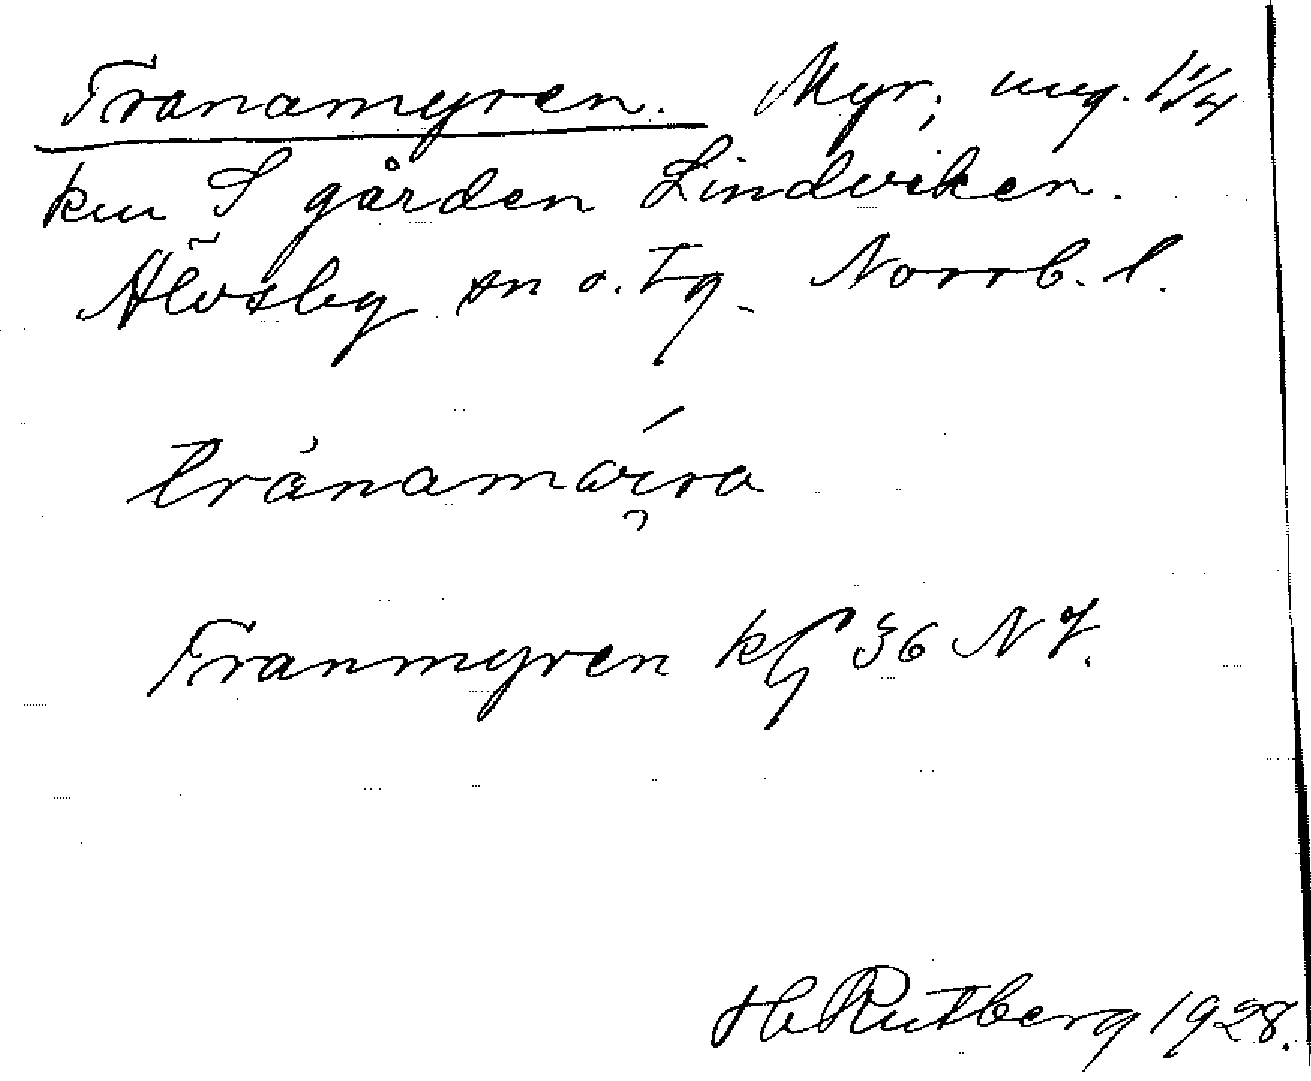 Tranamyren. Myr, ung. 1 1/4
km S gården Lindviken.
Älvsby sn o. tg. Norrb. l.
tránamǿira
Tranmyren kfl 36 NJ.
H. Rutberg 1928.